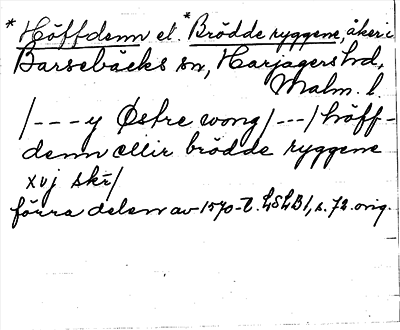 *Höffdenn el. *Brödde ryggene, åker i
Barsebäcks sn, Harjagers hd,
Malm. l.
/---y Østre wong/---/höff-
denn ellir brödde ryggene
xvj skr/
förra delen av 1570-t. LSLB1, s. 72 orig.